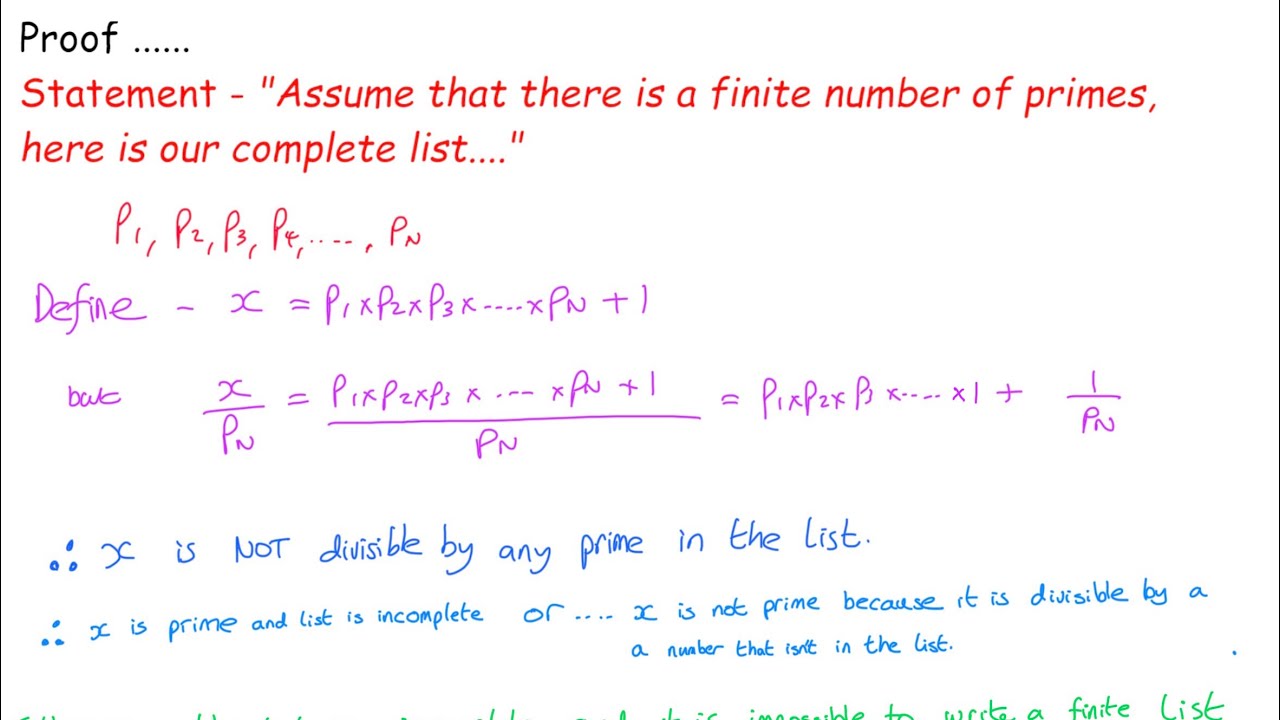 Proof ......
Statement - "Assume that there is a finite number of primes,
here is our complete list...."
P1, P2, P3, P4, ...., PN
Define - x = P1 x P2 x P3 x .... x PN + 1
but x/PN = (P1 x P2 x P3 x .... x PN + 1)/PN = P1 x P2 x P3 x .... x 1 + 1/PN
∴ x is NOT divisible by any prime in the list.
∴ x is prime and list is incomplete or .... x is not prime because it is divisible by a
a number that isn't in the list.
it is impossible to write a finite list